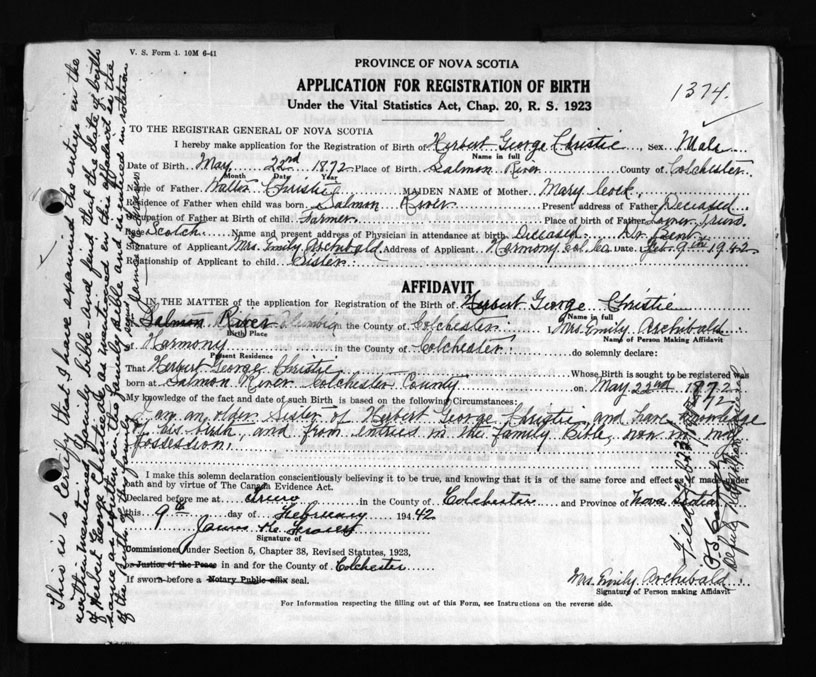 V. S. Form 4. 10M 6-41
PROVINCE OF NOVA SCOTIA
APPLICATION FOR REGISTRATION OF BIRTH
Under the Vital Statistics Act, Chap. 20, R. S. 1923
1374.
TO THE REGISTRAR GENERAL OF NOVA SCOTIA
I hereby make application for the Registration of Birth of Herbert George Christie Sex Male
Name in full
Date of Birth May 22nd 1872 Place of Birth Salmon River County of Colchester
Month Date Year
Name of Father Christie MAIDEN NAME of Mother Mary Cock
Residence of Father when child was born Salmon River Present address of Father Deceased
Occupation of Father at Birth of child Farmer Place of birth of Father Lower Truro
Race Scotch Name and present address of Physician in attendance at birth Deceased Dr. Bent
Signature of Applicant Mrs. Emily Archibald Address of Applicant Harmony Col. Co. Date Feb. 9th 1942
Relationship of Applicant to child Sister
AFFIDAVIT
IN THE MATTER of the application for Registration of the Birth of Herbert George Christie
Name in full
Salmon River in the County of Colchester Mrs. Emily Archibald
Birth Place Name of Person Making Affidavit
of Harmony in the County of Colchester do solemnly declare:
Present Residence
That Herbert George Christie Whose Birth is sought to be registered was
born at Salmon River Colchester County on May 22nd 1872
My knowledge of the fact and date of such Birth is based on the following Circumstances: 1872
I am an older Sister of Herbert George Christie, and have knowledge
of his birth, and from entries in the family Bible, now in my
possession.
I make this solemn declaration conscientiously believing it to be true, and knowing that it is of the same force and effect as if made under
oath and by virtue of The Canada Evidence Act.
Declared before me at Truro in the County of Colchester and Province of Nova Scotia
this 9th day of February 1942
James
Signature of
Commissioner under Section 5, Chapter 38, Revised Statutes, 1923,
or Justice of the Peace in and for the County of Colchester
If sworn before a Notary Public affix seal.
Mrs. Emily Archibald
Signature of Person making Affidavit
For Information respecting the filling out of this Form, see Instructions on the reverse side.
This is to certify that I have examined the entries in the
within mentioned family bible and find that the date of birth
of Herbert George Christie is as mentioned in this affidavit
Deputy Registrar General